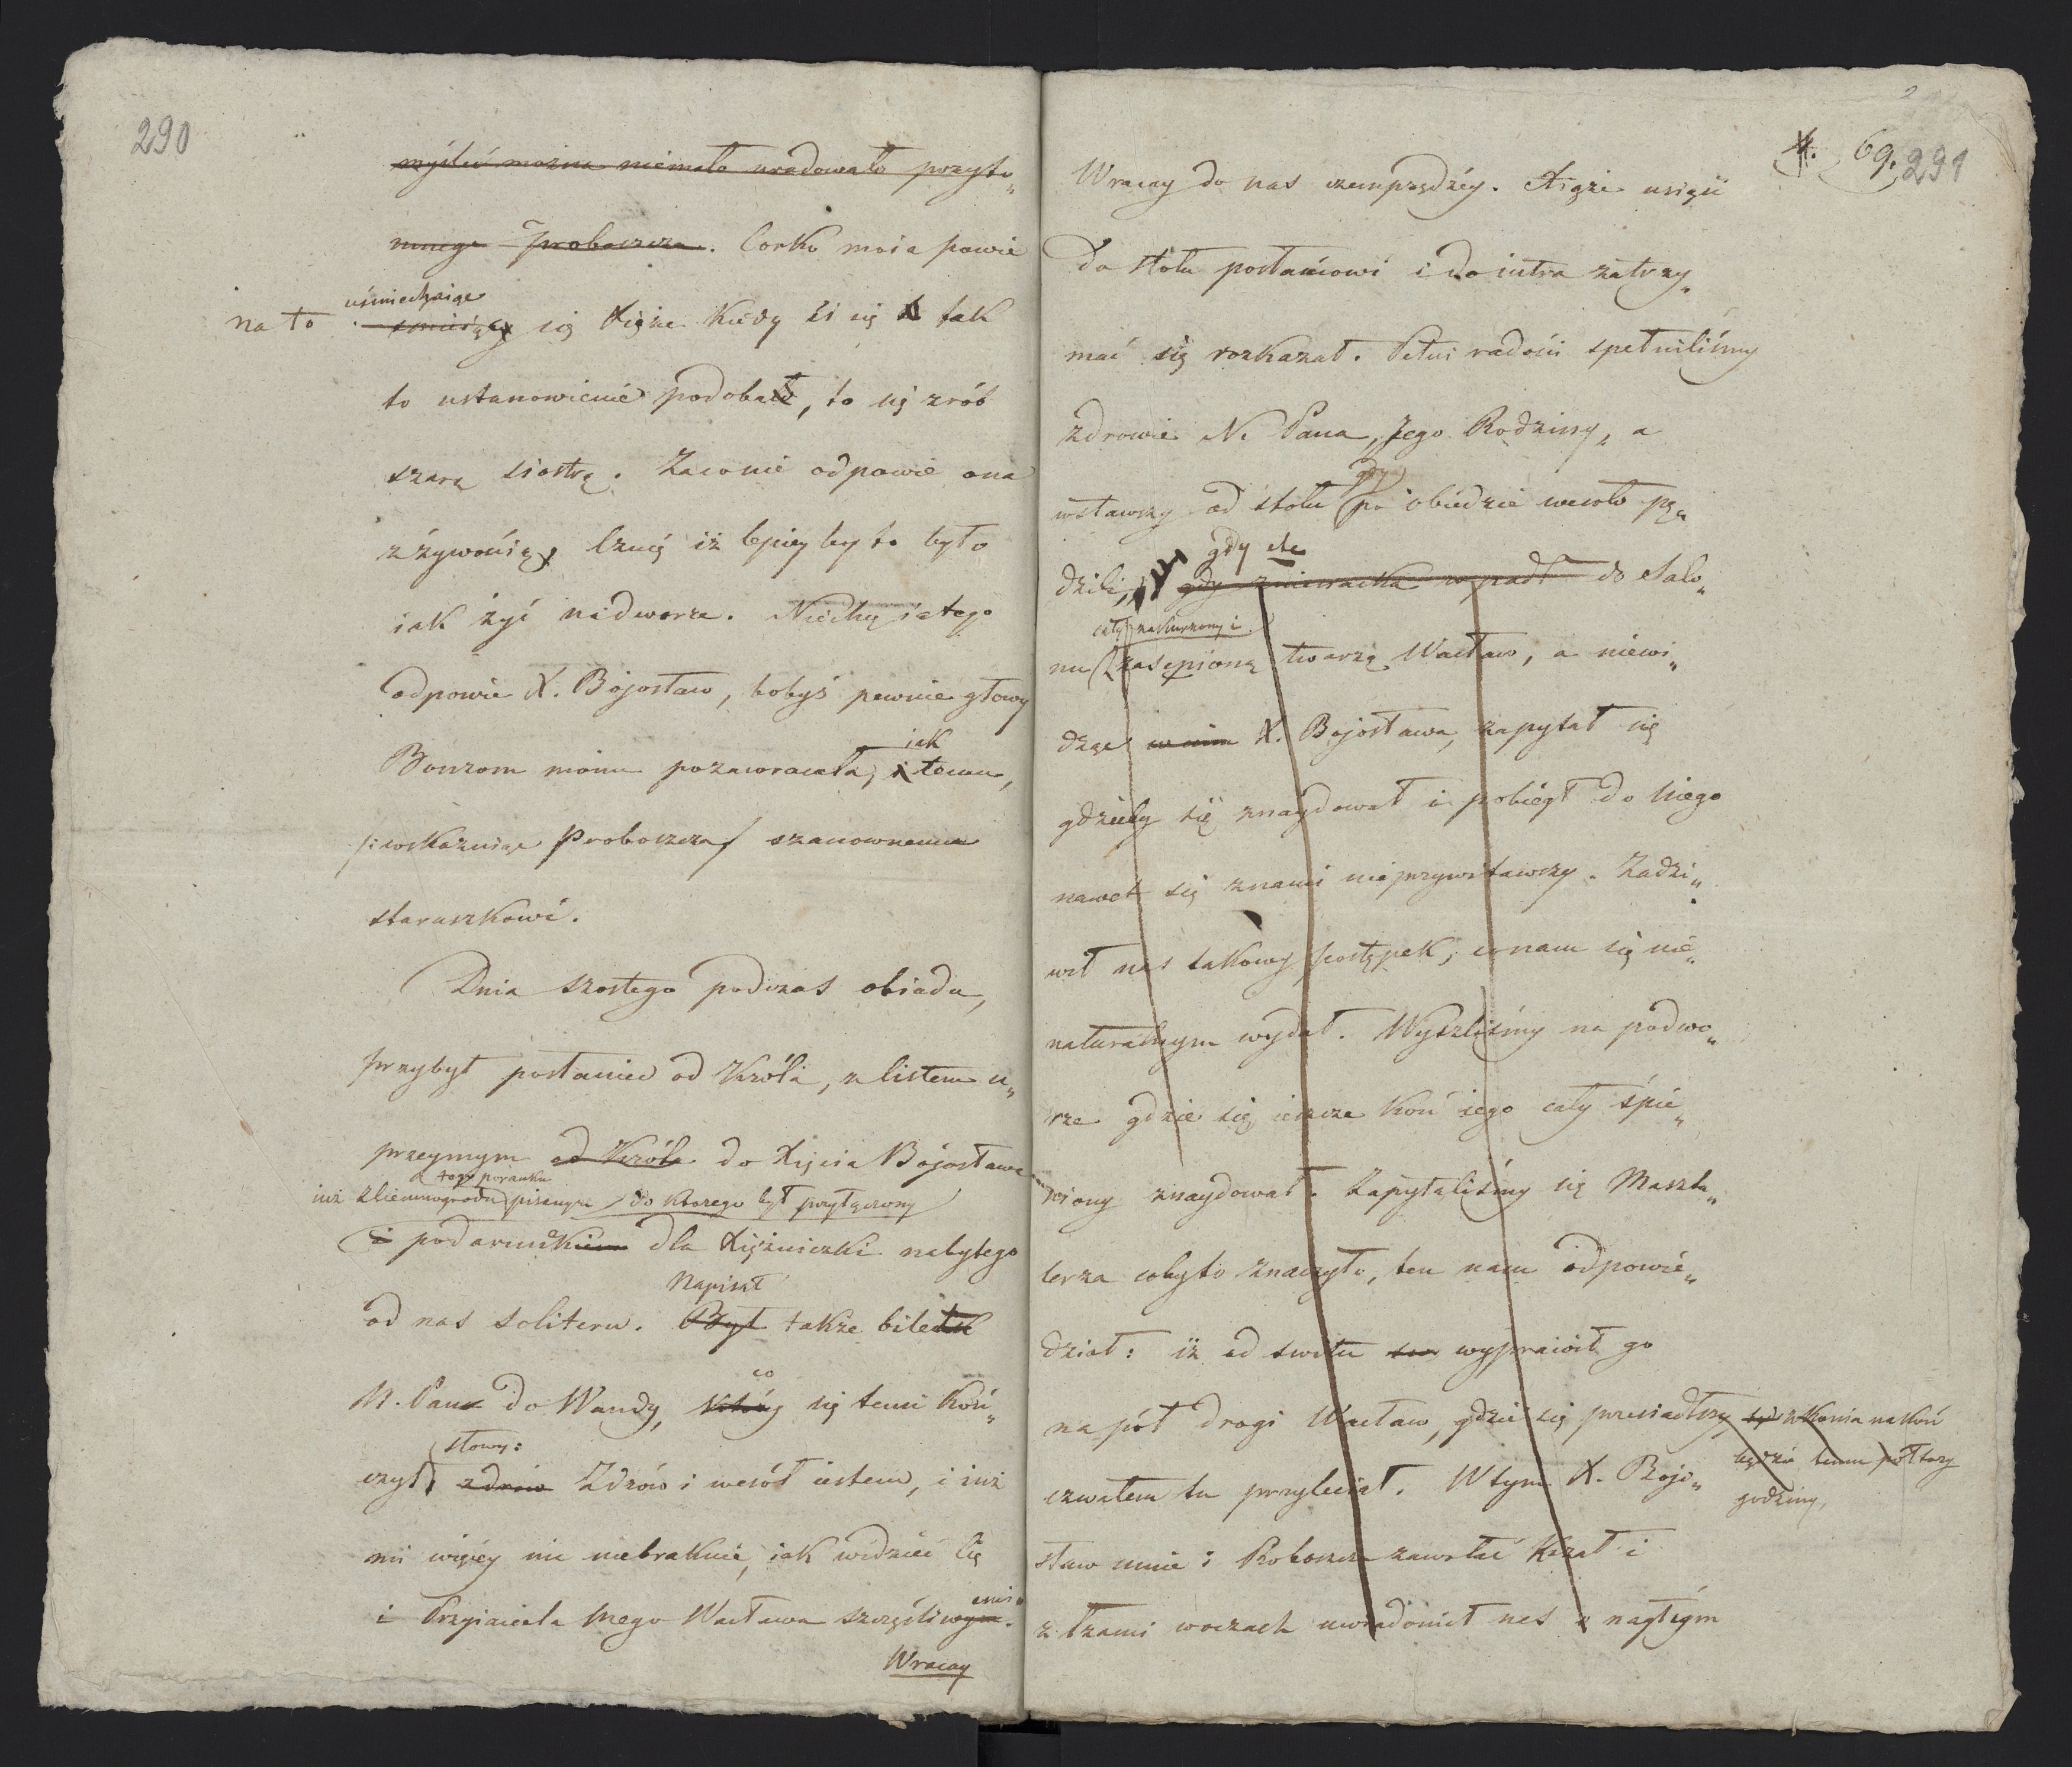 290
myśleć można niemało uradowało przyto„
mnego Proboszcza. Corko moia powie
uśmiechaiąc
na to śmieiąc się Xiąże kiedy Ci się tak
to ustanowienie podobało, to się zrób
szarą siostrą. Zaconie odpowie ona
z żywością, Czuię iż lepiey by to było
iak żyć nadworze. Niechcę ia tego
odpowie X. Bojosław, bobyś pewnie głowy
iak
Bonzom moim pozawracała, i temu,
/:wskazuiąc Proboszcza/ szanownemu
staruszkowi.
Dnia szostego podczas obiadu,
przybył posłaniec od Króla, z listem u„
przeymym od Króla do Xięcia Bojosława
tego poranku
iuż z Ciemnogrodu pisanym do ktorego był przyłączony
i podarunkiem dla Xiężniczki nabytego
Napisał
od nas soliteru. Był także bilecik
co
N. Pana do Wandy, który się temi koń„
słowy:
czył, zdrów Zdrów i wesół iestem, i iuż
mi więcey nic niebraknie, iak widzieć Cię
emi
i Przyiaciela mego Wacława szczęśliwym.
Wracay
4. 69. 291
Wracay do nas czemprędzéy. Xiąże usiąść
do stołu posłańcowi i do iutra zatrzy„
mać się rozkazał. Pełni radości spełniliśmy
zdrowie N. Pana, Jego Rodziny, a
gdy
wstawszy od stołu po obiedzie wesoło pę„
gdy ale
dzili, gdy znienacka wpadł do Salo„
cały zakurzony i
nu zasępioną twarzą Wacław, a niewi„
dząc w nim X. Bojosława, zapytał się
gdzieby się znaydował i pobiegł do niego
nawet się znami nieprzywitawszy. Zadzi„
wił nas takowy postępek, co nam się nie„
naturalnym wydał. Wyszliśmy na podwo„
rze gdzie się ieszcze koń iego cały śpie„
niony znaydował. Zapytaliśmy się Maszta„
lerza coby to znaczyło, ten nam odpowie„
dział: iż od switu wyprawił go
na pół drogi Wacław, gdzie się przesiadłszy z konia na koń
czwałem tu przyleciał. W tym X. Bojo„
będzie temu półtory
godziny,
sław mnie i Proboszcza zawołać kazał i
z łzami woczach uwiadomił nas o nagłém